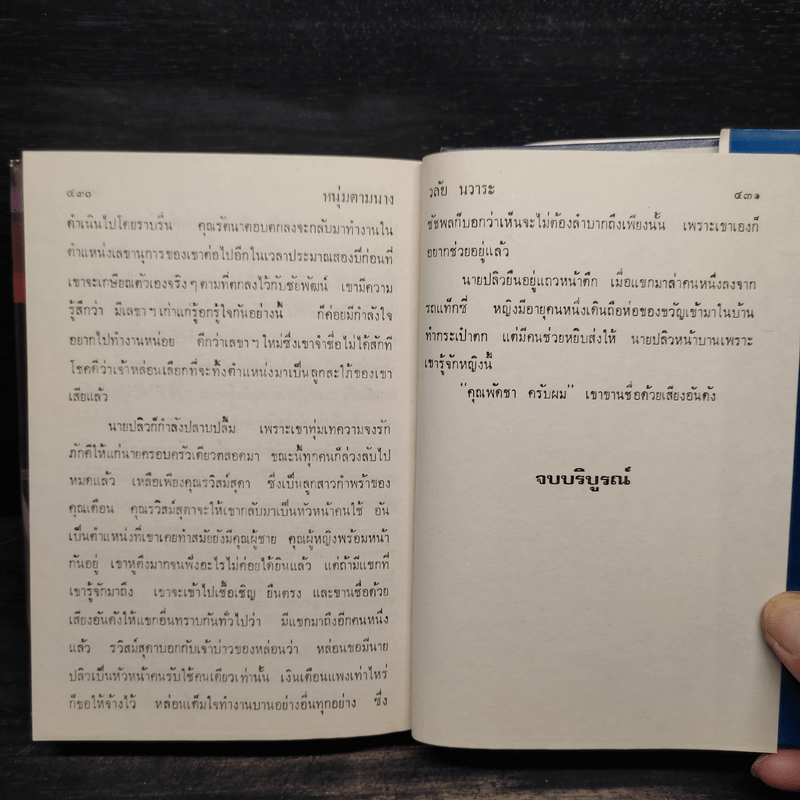 ๔๓๐ หนุ่มตามนาง
ดำเนินไปโดยราบรื่น คุณรัตนาตอบตกลงจะกลับมาทำงานใน
ตำแหน่งเลขานุการของเขาต่อไปอีกในเวลาประมาณสองปีก่อนที่
เขาจะเกษียณตัวเองจริงๆ ตามที่ตกลงไว้กับชัยพัฒน์ เขามีความ
รู้สึกว่า มีเลขาฯ เก่าแก่รู้อกรู้ใจกันอย่างนี้ ก็ค่อยมีกำลังใจ
อยากไปทำงานหน่อย ดีกว่าเลขาฯ ใหม่ซึ่งเขาจำชื่อไม่ได้สักที
โชคดีว่าเจ้าหล่อนเลือกที่จะทิ้งตำแหน่งมาเป็นลูกสะใภ้ของเขา
เสียแล้ว
นายปลิวก็กำลังปลาบปลื้ม เพราะเขาทุ่มเทความจงรัก
ภักดีให้แก่นายครอบครัวเดียวตลอดมา ขณะนี้ทุกคนก็ล่วงลับไป
หมดแล้ว เหลือเพียงคุณรวิสม์สุดา ซึ่งเป็นลูกสาวกำพร้าของ
คุณเดือน คุณรวิสม์สุดาจะให้เขากลับมาเป็นหัวหน้าคนใช้ อัน
เป็นตำแหน่งที่เขาเคยทำสมัยยังมีคุณผู้ชาย คุณผู้หญิงพร้อมหน้า
กันอยู่ เขาหูตึงมากจนฟังอะไรไม่ค่อยได้ยินแล้ว แต่ถ้ามีแขกที่
เขารู้จักมาถึง เขาจะเข้าไปเชื้อเชิญ ยืนตรง และขานชื่อด้วย
เสียงอันดังให้แขกอื่นทราบกันทั่วไปว่า มีแขกมาถึงอีกคนหนึ่ง
แล้ว รวิสม์สุดาบอกกับเจ้าบ่าวของหล่อนว่า หล่อนขอมีนาย
ปลิวเป็นหัวหน้าคนรับใช้คนเดียวเท่านั้น เงินเดือนแพงเท่าไหร่
ก็ขอให้จ้างไว้ หล่อนเต็มใจทำงานบ้านอย่างอื่นทุกอย่าง ซึ่ง
วลัย นวาระ ๔๓๑
ชัชพลก็บอกว่าเห็นจะไม่ต้องลำบากถึงเพียงนั้น เพราะเขาเองก็
อยากช่วยอยู่แล้ว
นายปลิวยืนอยู่แถวหน้าตึก เมื่อแขกมาล่าคนหนึ่งลงจาก
รถแท็กซี่ หญิงมีอายุคนหนึ่งเดินถือห่อของขวัญเข้ามาในบ้าน
ทำกระเป๋าตก แต่มีคนช่วยหยิบส่งให้ นายปลิวหน้าบานเพราะ
เขารู้จักหญิงนี้
“คุณพัดชา ครับผม” เขาขานชื่อด้วยเสียงอันดัง
จบบริบูรณ์